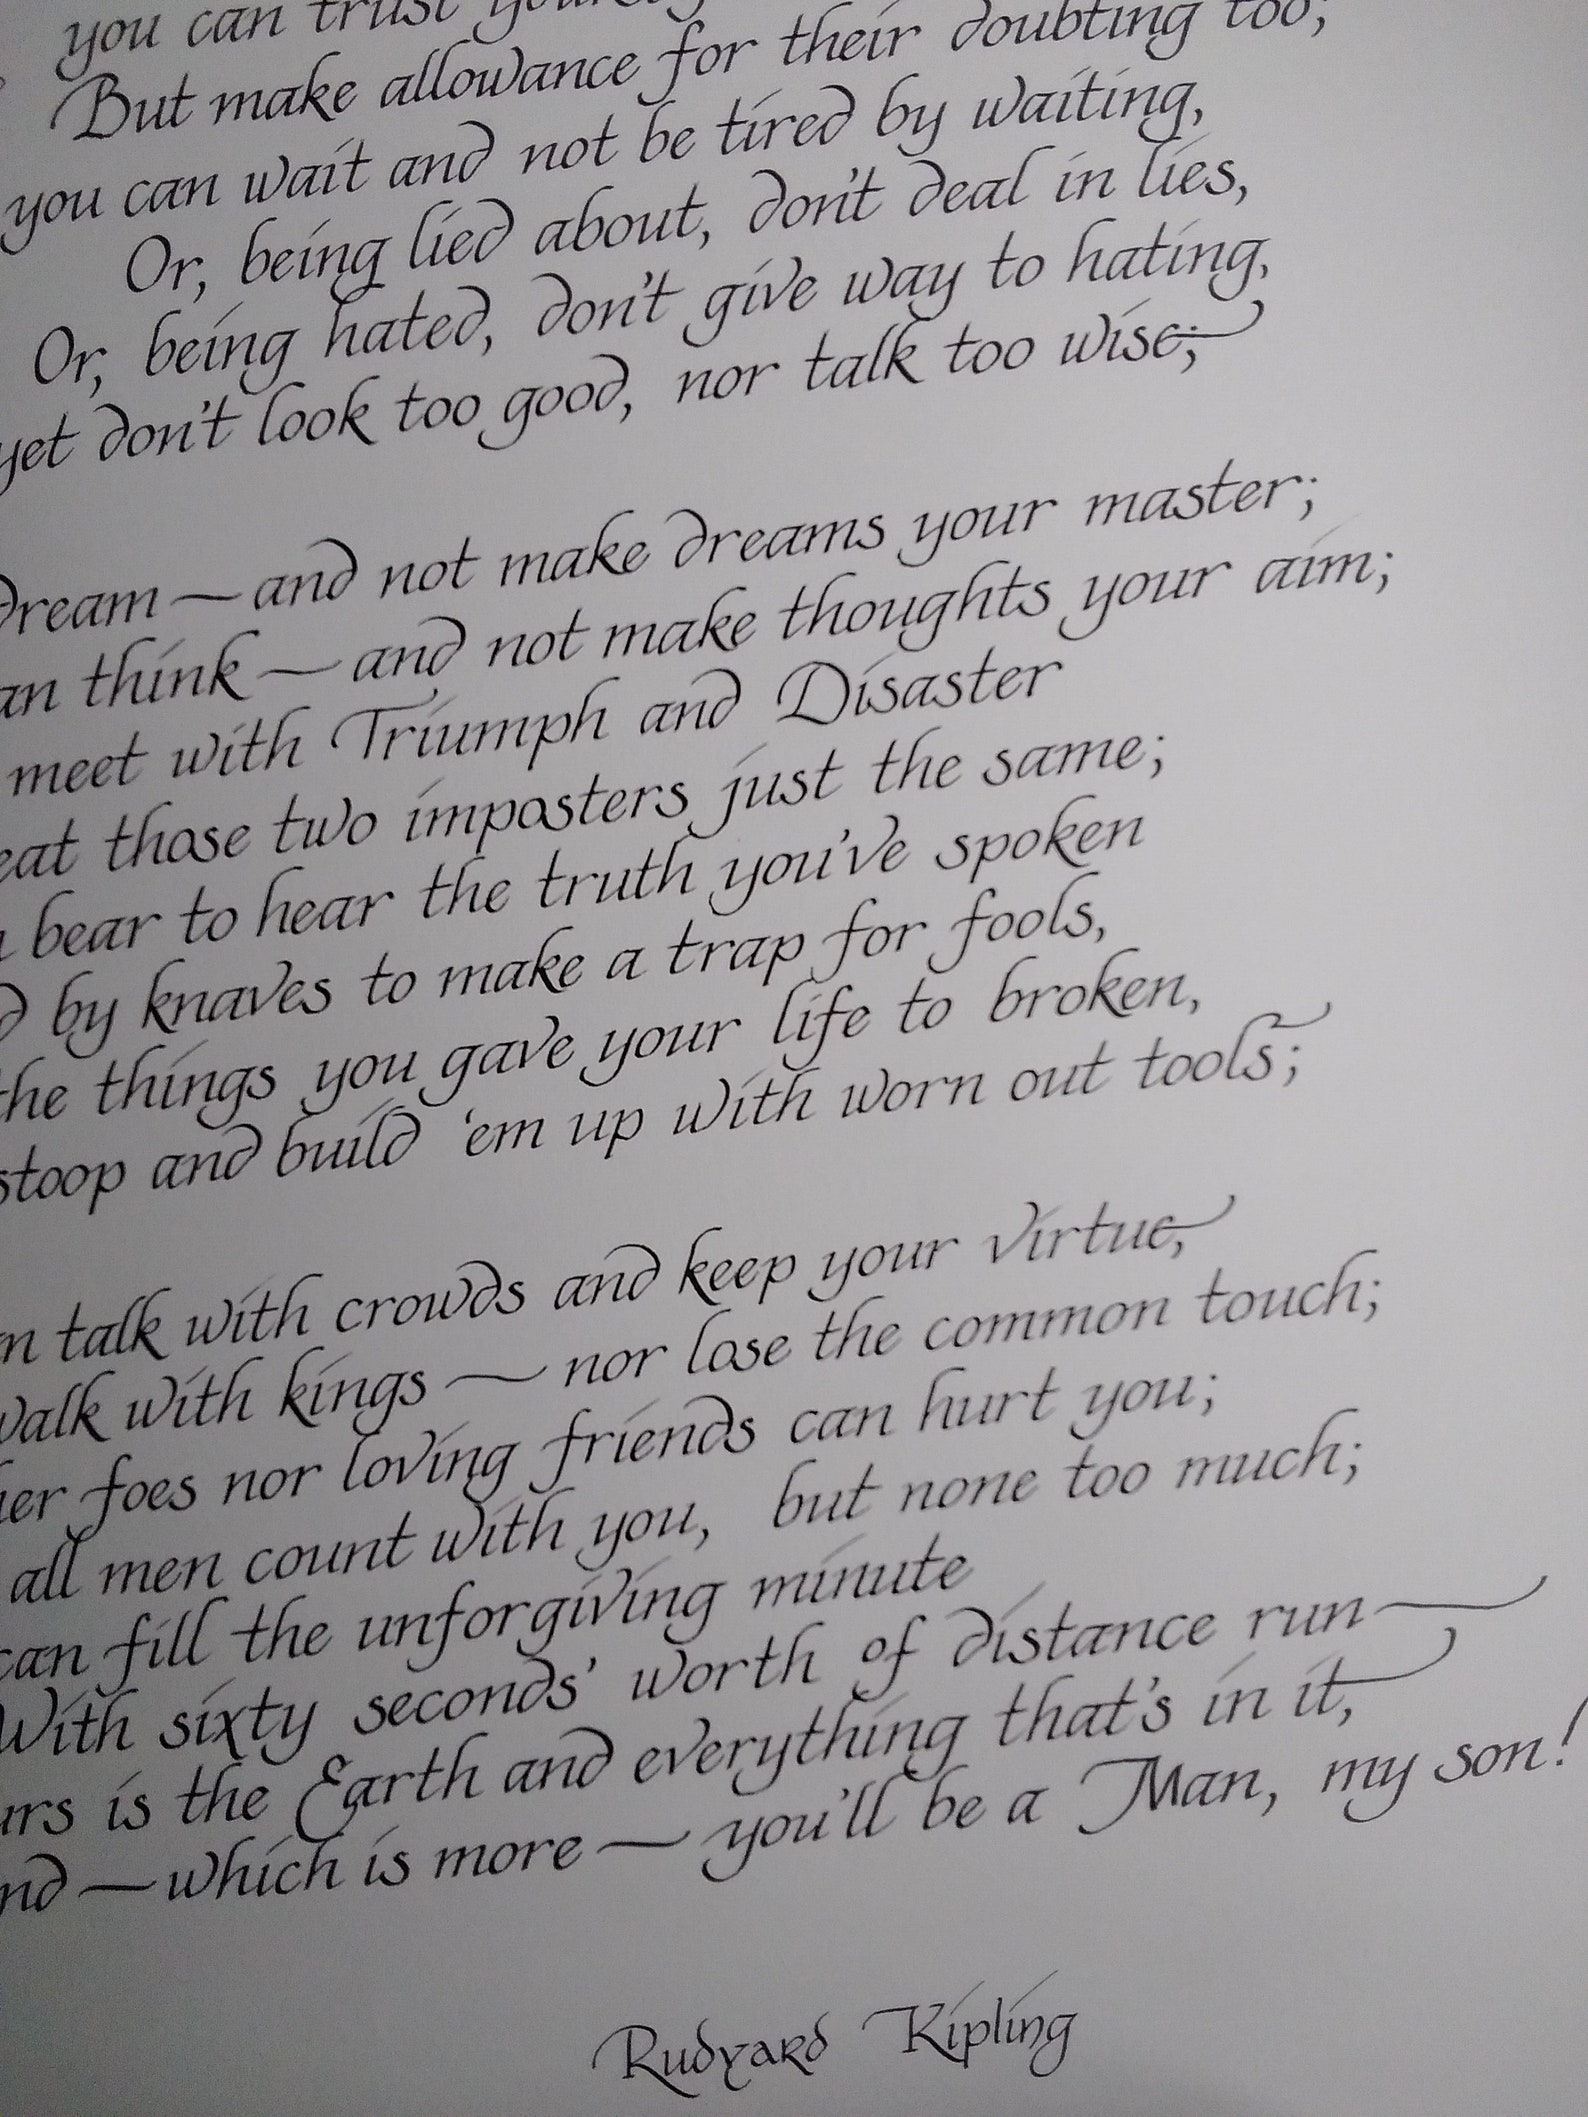 you can trust
But make allowance for their doubting too;
you can wait and not be tired by waiting,
Or, being lied about, don't deal in lies,
Or, being hated, don't give way to hating,
yet don't look too good, nor talk too wise;
Dream — and not make dreams your master;
an think — and not make thoughts your aim;
meet with Triumph and Disaster
eat those two imposters just the same;
bear to hear the truth you've spoken
d by knaves to make a trap for fools,
the things you gave your life to broken,
stoop and build 'em up with worn out tools;
n talk with crowds and keep your virtue,
walk with kings — nor lose the common touch;
her foes nor loving friends can hurt you;
all men count with you, but none too much;
can fill the unforgiving minute
With sixty seconds' worth of distance run —
urs is the Earth and everything that's in it,
nd — which is more — you'll be a Man, my son!
Rudyard Kipling